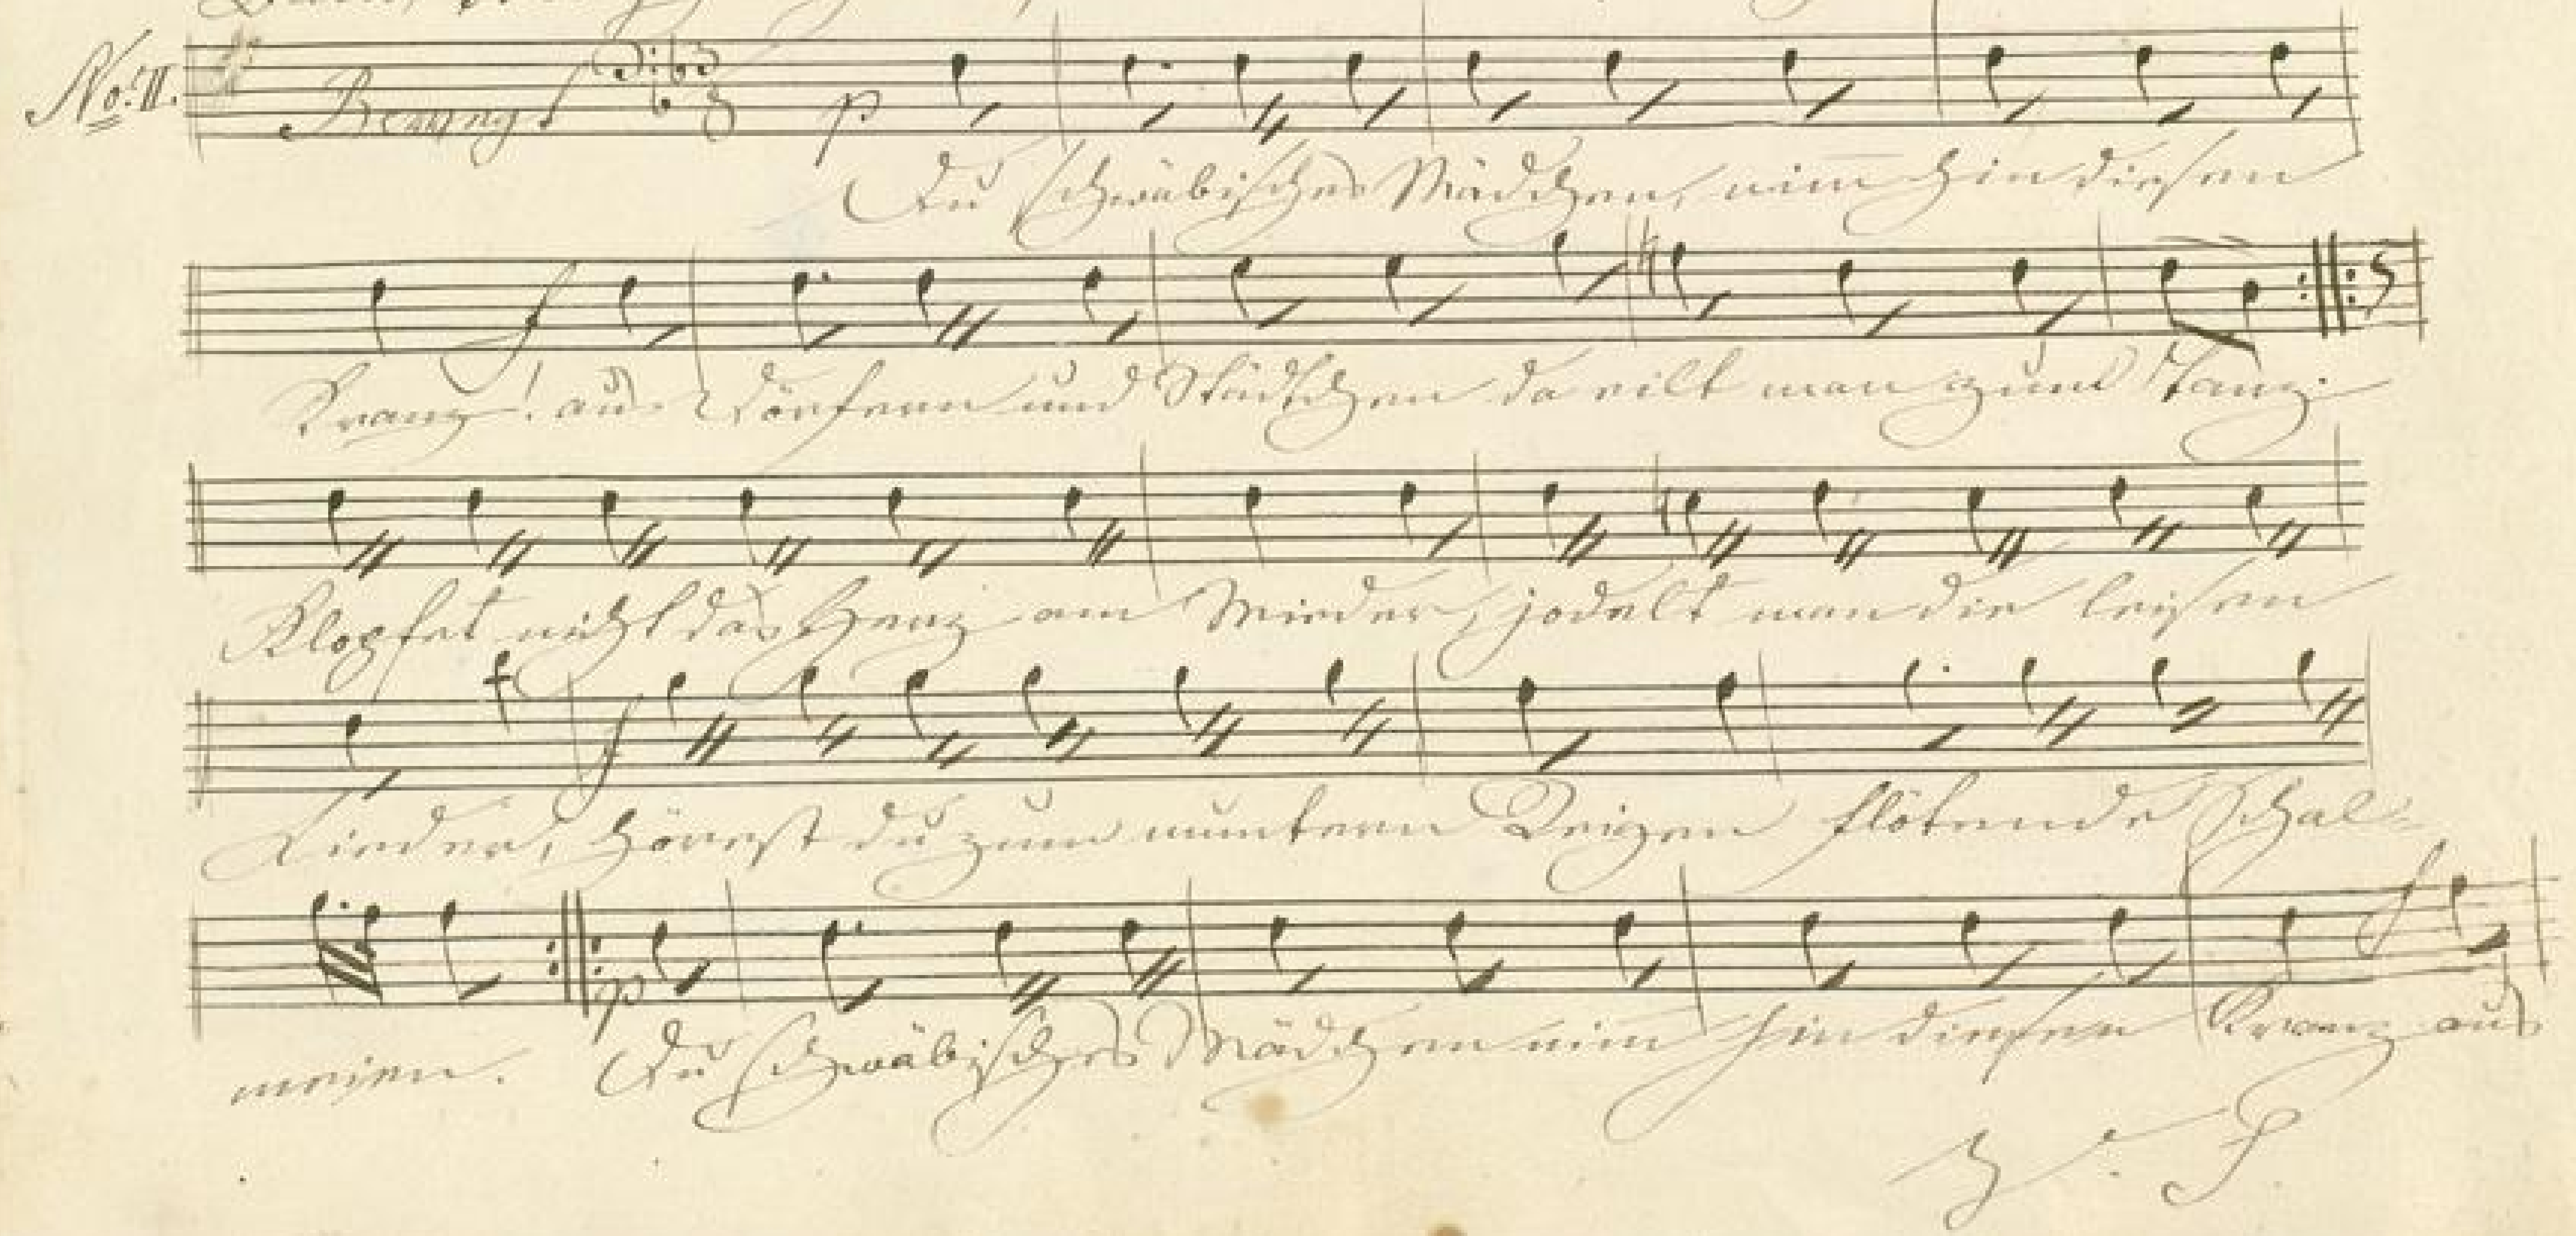 No. II.
p
Du schwäbisches Mädchen, nim̅ hin diesen
f
Kranz! aus Dörfern und Städtchen da eilt man zum Tanz.
Klopfet nicht das Herz am Mieder, jodelt man die leisen
f
Lieder, hörest du zum muntern Reigen flötende Schal-
p f
meien. Du schwäbisches Mädchen nim hin diesen Kranz aus